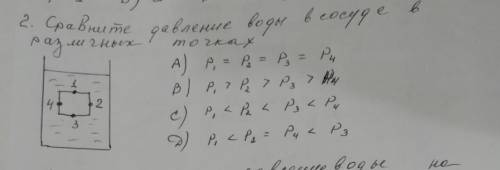 2. Сравните давление воды в сосуде в
различных точках
A) P₁ = P₂ = P₃ = P₄
B) P₁ > P₂ > P₃ > P₄
C) P₁ < P₂ < P₃ < P₄
D) P₁ < P₂ = P₄ < P₃
1
4 2
3
воды на